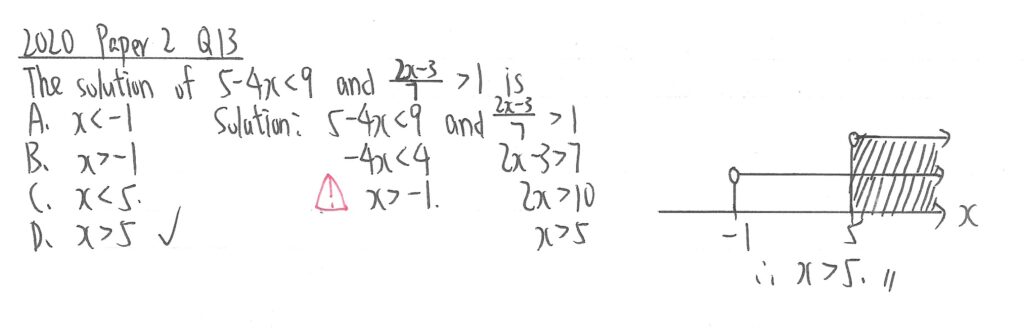 2020 Paper 2 Q13
The solution of 5-4x<9 and (2x-3)/7 >1 is
A. x<-1
B. x>-1
C. x<5.
D. x>5 ✓
Solution: 5-4x<9 and (2x-3)/7 >1
-4x<4 2x-3>7
! x>-1. 2x>10
x>5
-1 5 x
∴ x>5. //